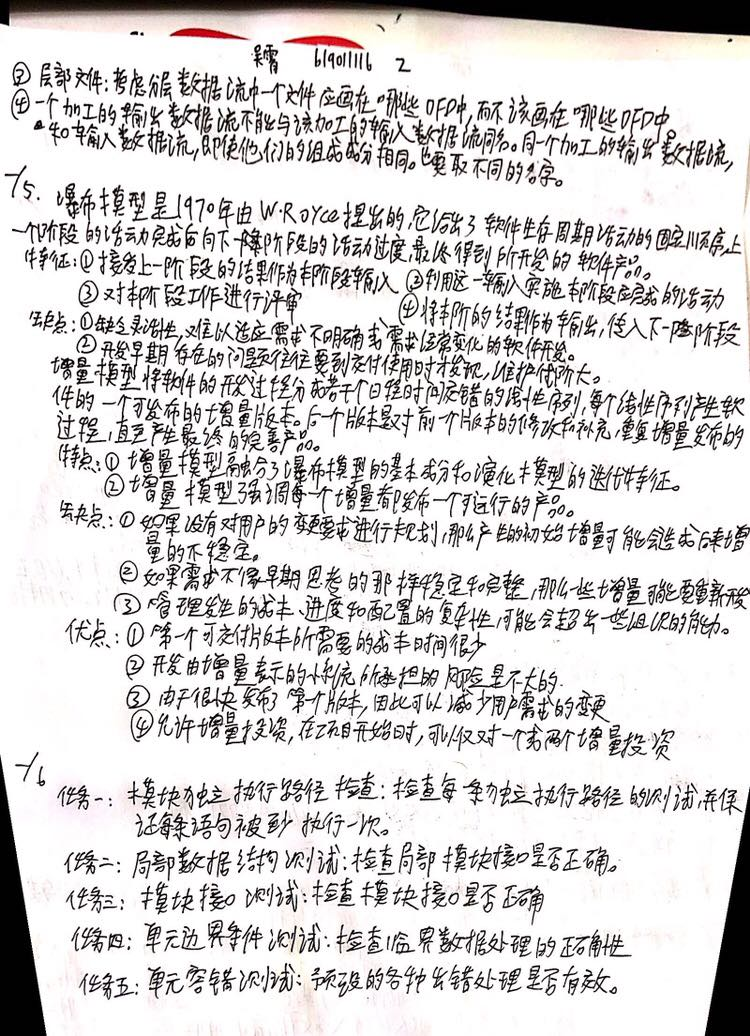 吴霄 619011116 2
③ 局部文件:考虑分层数据流中一个文件应画在哪些DFD中,而不该画在哪些DFD中
④ 一个加工的输出数据流不能与该加工的输入数据流同名。同一个加工的输出数据流,
和输入数据流,即使他们的组成成分相同。也要取不同的名字。
5. 瀑布模型是1970年由W·Royce提出的,它给出了软件生存周期活动的固定顺序,上
一个阶段的活动完成后向下一阶段的活动过度,最终得到所开发的软件产品。
特征:① 接受上一阶段的结果作为本阶段输入 ② 利用这一输入实施本阶段应完成的活动
③ 对本阶段工作进行评审 ④ 将本阶的结果作为输出,传入下一阶段
缺点:① 缺乏灵活性,难以适应需求不明确或需求经常变化的软件开发。
② 开发早期存在的问题往往要到交付使用时才发现,维护代价大。
增量模型将软件的开发过程分成若干个日程时间交错的线性序列,每个线性序列产生软
件的一个可发布的增量版本。后一个版本是对前一个版本的修改和补充,重复增量发布的
过程,直至产生最终的完善产品。
特点:① 增量模型融合了瀑布模型的基本成分和演化模型的迭代特征。
② 增量模型强调每一个增量都发布一个可运行的产品。
缺点:① 如果没有对用户的变更要求进行规划,那么产生的初始增量可能会造成后来增
量的不稳定。
② 如果需求不像早期思考的那样稳定和完整,那么一些增量可能要重新开发
③ 管理发生的成本、进度和配置的复杂性,可能会超出一些组织的能力。
优点:① 第一个可交付版本所需要的成本时间很少
② 开发由增量表示的小系统所承担的风险是不大的
③ 由于很快发布了第一个版本,因此可以减少用户需求的变更
④ 允许增量投资,在项目开始时,可以仅对一个或两个增量投资
6
任务一:模块独立执行路径检查:检查每一条独立执行路径的测试,并保
证每条语句被至少执行一次。
任务二:局部数据结构测试:检查局部模块接口是否正确。
任务三:模块接口测试:检查模块接口是否正确
任务四:单元边界条件测试:检查临界数据处理的正确性
任务五:单元容错测试:预设的各种出错处理是否有效。